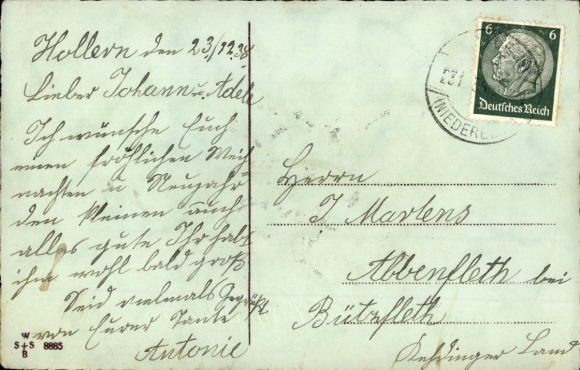 Hollern den 23/12.38
Lieber Johann u. Adele
Ich wünsche Euch
einen fröhlichen Weih
nachten u Neujahr
den kleinen auch
alles gute Ihr habt
ihn wohl bald groß
Seid vielmals Gegrüßt
von Eurer Tante
Antonie
W
S+S 8885
B
6 6
Deutsches Reich
(NIEDERE
Herrn
J. Martens
Abbenfleth bei
Bützfleth
Kehdinger Land